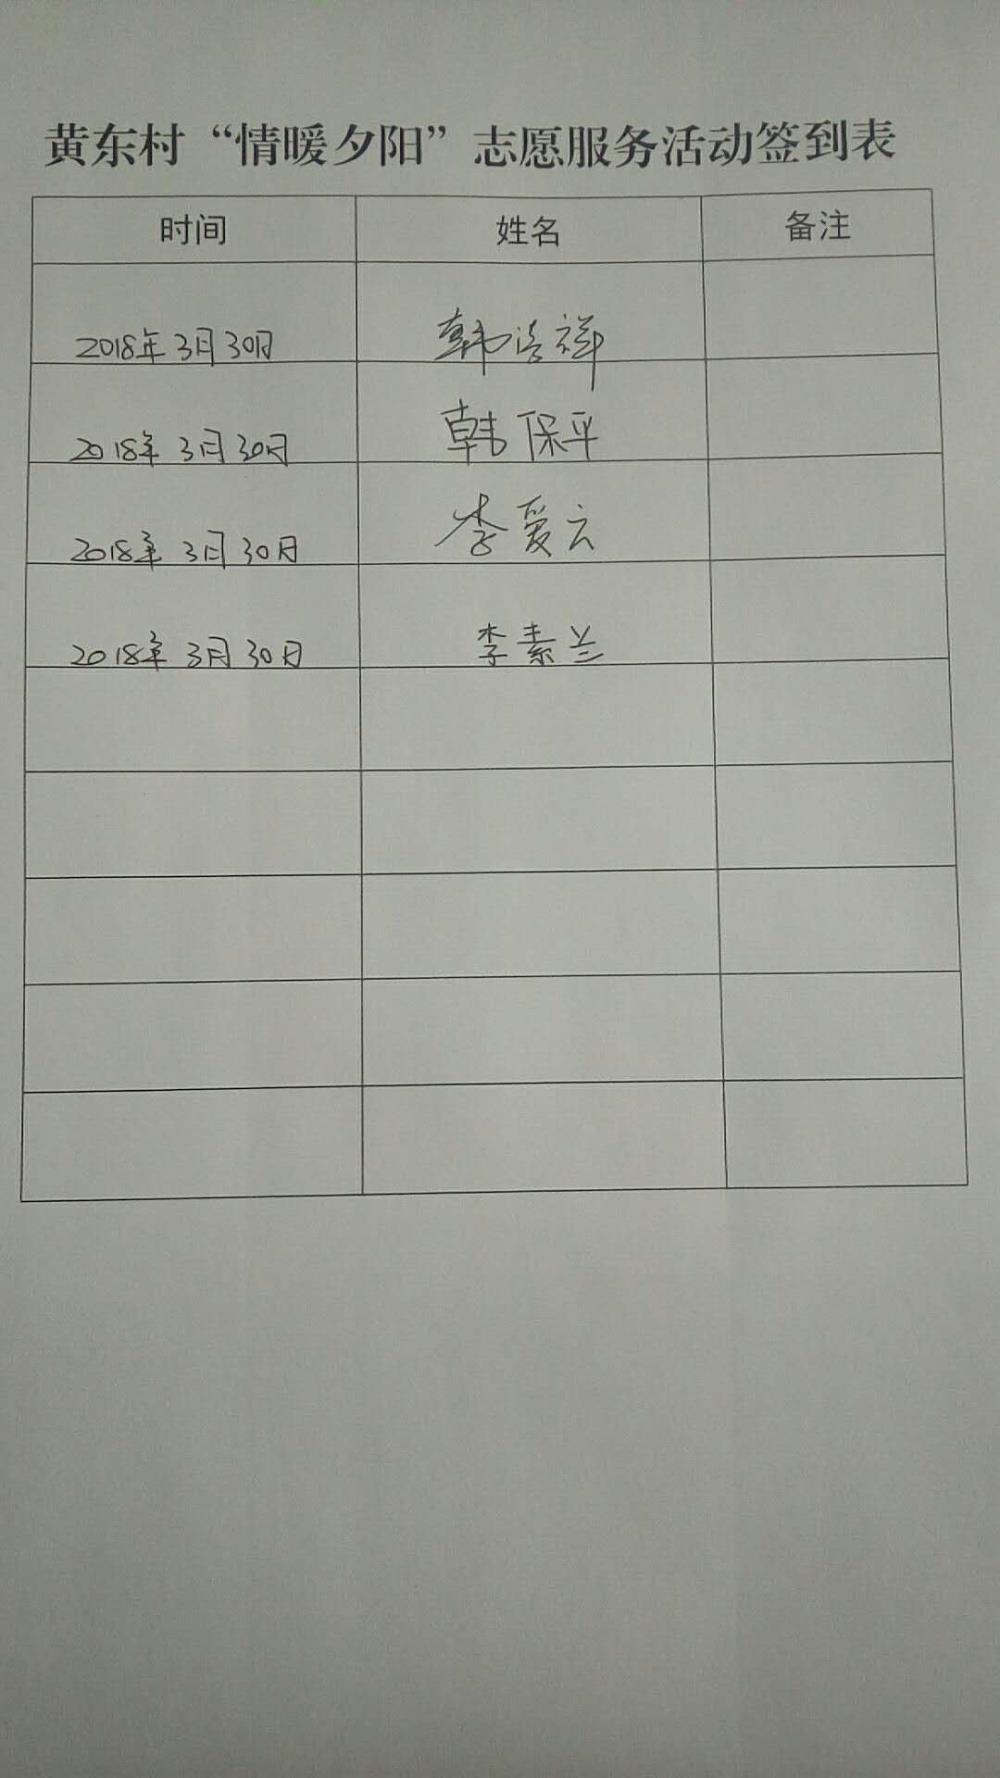 黄东村“情暖夕阳”志愿服务活动签到表
时间 姓名 备注
2018年3月30日 韩浩祥
2018年3月30日 韩保平
2018年3月30日 李爱云
2018年3月30日 李素兰